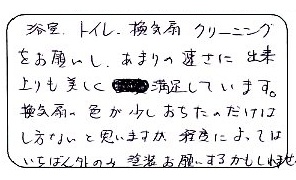 浴室、トイレ、換気扇 クリーニング
をお願いし、あまりの速さに 出来
上りも美しく 満足しています。
換気扇の色が少しおちたのだけは
し方ないと思いますが 程度によっては
いちばん外のみ 塗装お願いするかもしれませ